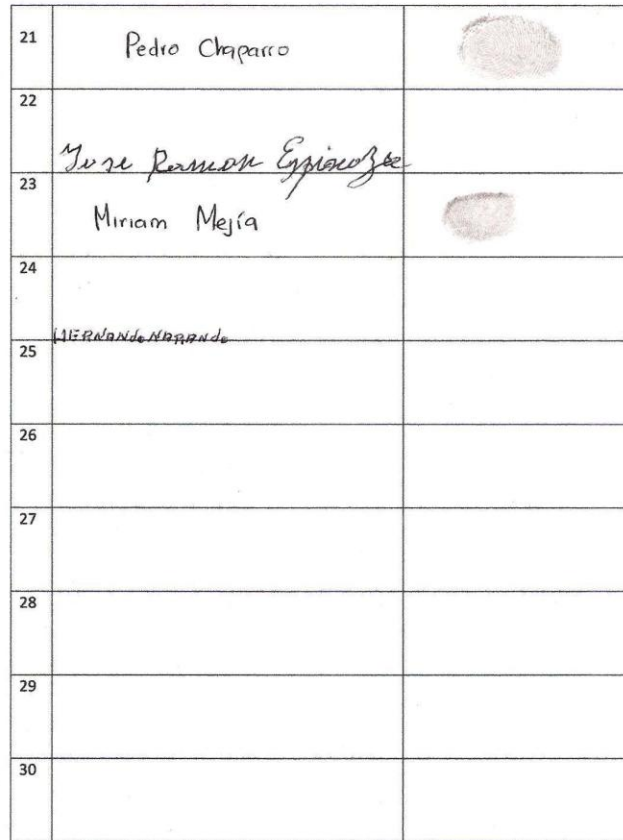 21 Pedro Chaparro
22
Jose Ramon
23
Miriam Mejía
24
HERNANdo NARANdo
25
26
27
28
29
30